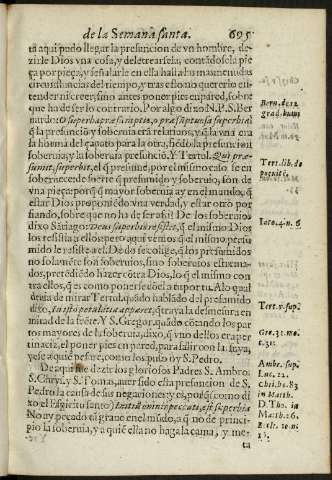 de la Semana santa. 695
tã aqui pudo llegar la presuncion de vn hombre, de-
zirle Dios vna cosa, y deletrearsela, contãdosela pie
ça por pieça, y señalarle en ella hasta las mas menudas
circunstancias de tiẽpo, y tras esso no quererlo en-
tender ni creer, sino antes poner pies en pared, sobre
que ha de ser lo contrario. Por algo dixo N. P. S. Ber
nardo: O superba præsumptio, o præsumptuosa superbia!
q̃ la presunciõ y soberuia erã relatiuos, y q̃ la vna era
la horma del çapato para la otra, siẽdo la presuncion
soberuia, y la soberuia presunciõ. Y Tertul. Qui præ-
sumit, superbit, el q̃ presume, por el mismo caso se en
soberuece: de suerte q̃ presumido y soberuio, son de
vna pieça: porq̃ q̃ mayor soberuia ay en el mundo, q̃
estar Dios proponiẽdo vna verdad, y estar otro por
fiando, sobre que no ha de ser assi? De los soberuios
dixo Sãtiago: Deus superbis resistit, q̃ el mismo Dios
los resistia: y ellos pero aqui vemos q̃ el mismo presu-
mido le resiste a el. De do se colige, q̃ los presumidos
no solamẽte son soberuios, sino soberuios estrema-
dos, pretẽdiẽdo hazer cõtra Dios, lo q̃ el mismo con
tra ellos, q̃ es como ponerse cõ el a tu por tu. A lo qual
deuia de mirar Tertul. quãdo hablãdo del presumido
dixo,
mitad de la frẽte. Y S. Gregor. quãdo cõtando los par
tos mayores de la soberuia, dixo, q̃ vno dellos era per
tinacia, el poner pies en pared, para salir con la suya,
y ese a quiẽ pesare, como los puso oy S. Pedro.
De aqui vino dezir los gloriosos Padres S. Ambro.
S. Chrys. y S. Tomas, auer sido esta presuncion de S.
Pedro la causa de sus negaciones: y es, porq̃ como di-
xo el Espiritu santo) Initium omnis peccati, est superbia
No ay pecado tã grãne en el mũdo, a q̃ no de princi-
pio la soberuia, y a quiẽ ella no haga la cama, y me-
ta
Bern. de 12
grad. hum
Tert. lib. de
Iaco. 4. n. 6
Tert. v. sup.
Gre. 31. mo.
c. 31.
Ambr. sup.
Luc. 22.
Chri. ho. 83
in Matth.
D. Tho. in
Matth. 26.
Eccle. 10. n.
15.